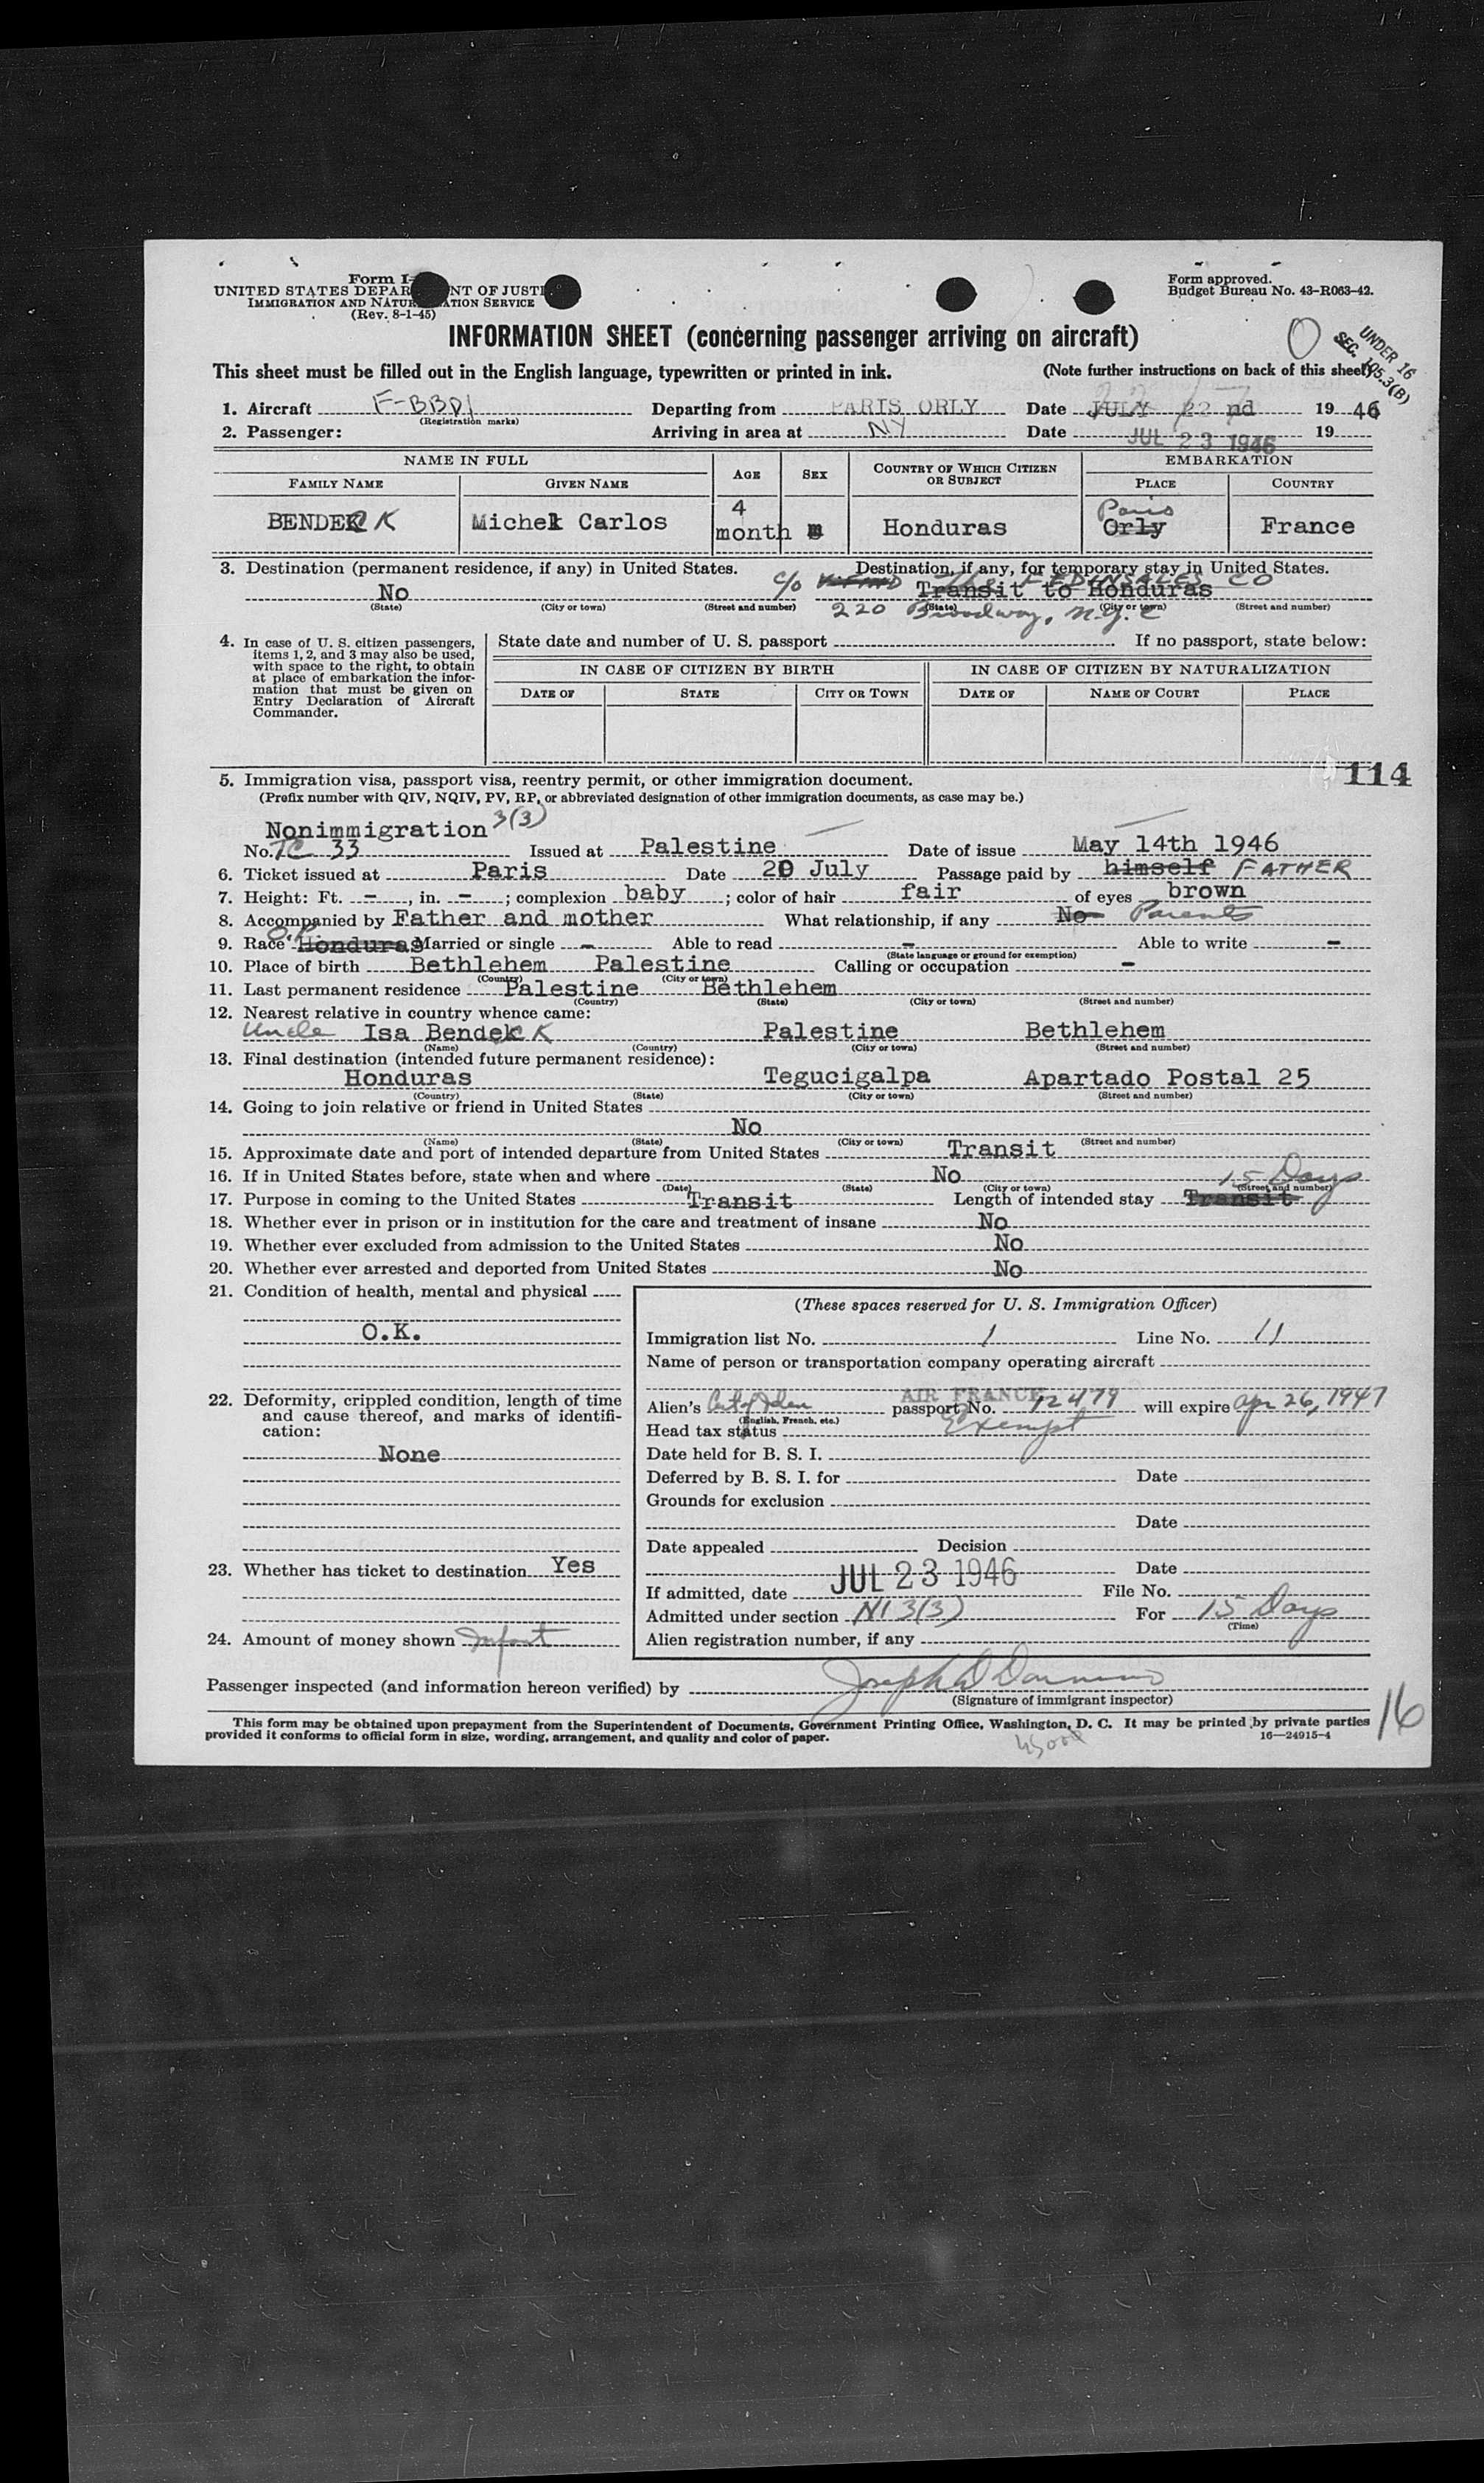 Form I-
UNITED STATES DEPAR NT OF JUSTI
IMMIGRATION AND NATU ATION SERVICE
(Rev. 8-1-45)
Form approved.
Budget Bureau No. 43-R063-42.
INFORMATION SHEET (concerning passenger arriving on aircraft)
UNDER 16
SEC. 105.3(B)
This sheet must be filled out in the English language, typewritten or printed in ink. (Note further instructions on back of this sheet)
1. Aircraft F-BBDI Departing from PARIS ORLY Date JULY 22 nd 1946
(Registration marks)
2. Passenger: Arriving in area at NY Date JUL 23 1946 19
NAME IN FULL AGE SEX COUNTRY OF WHICH CITIZEN OR SUBJECT EMBARKATION
FAMILY NAME GIVEN NAME PLACE COUNTRY
BENDECK Michel Carlos 4 month m Honduras Paris Orly France
3. Destination (permanent residence, if any) in United States. Destination, if any, for temporary stay in United States.
No c/o FEDINSALES CO Transit to Honduras
(State) (City or town) (Street and number) (State) (City or town) (Street and number)
220 Broadway, N.Y.C
4. In case of U. S. citizen passengers, items 1, 2, and 3 may also be used, with space to the right, to obtain at place of embarkation the information that must be given on Entry Declaration of Aircraft Commander.
State date and number of U. S. passport If no passport, state below:
IN CASE OF CITIZEN BY BIRTH IN CASE OF CITIZEN BY NATURALIZATION
DATE OF STATE CITY OR TOWN DATE OF NAME OF COURT PLACE
114
5. Immigration visa, passport visa, reentry permit, or other immigration document.
(Prefix number with QIV, NQIV, PV, RP, or abbreviated designation of other immigration documents, as case may be.)
Nonimmigration 3(3)
No. TC 33 Issued at Palestine Date of issue May 14th 1946
6. Ticket issued at Paris Date 20 July Passage paid by himself FATHER
7. Height: Ft. -, in. -; complexion baby; color of hair fair of eyes brown
8. Accompanied by Father and mother What relationship, if any No Parents
9. Race Honduras Married or single - Able to read - Able to write -
(State language or ground for exemption)
10. Place of birth Bethlehem Palestine Calling or occupation -
(Country) (City or town)
11. Last permanent residence Palestine Bethlehem
(Country) (State) (City or town) (Street and number)
12. Nearest relative in country whence came:
Uncle Isa Bendeck Palestine Bethlehem
(Name) (Country) (City or town) (Street and number)
13. Final destination (intended future permanent residence):
Honduras Tegucigalpa Apartado Postal 25
(Country) (State) (City or town) (Street and number)
14. Going to join relative or friend in United States
No
(Name) (State) (City or town) (Street and number)
15. Approximate date and port of intended departure from United States Transit
16. If in United States before, state when and where No
(Date) (State) (City or town) (Street and number)
15 Days
17. Purpose in coming to the United States Transit Length of intended stay Transit
18. Whether ever in prison or in institution for the care and treatment of insane No
19. Whether ever excluded from admission to the United States No
20. Whether ever arrested and deported from United States No
21. Condition of health, mental and physical
O.K.
22. Deformity, crippled condition, length of time and cause thereof, and marks of identification:
None
23. Whether has ticket to destination Yes
24. Amount of money shown Infant
(These spaces reserved for U. S. Immigration Officer)
Immigration list No. 1 Line No. 11
Name of person or transportation company operating aircraft
AIR FRANCE
Alien's Cert of Iden passport No. 12479 will expire Apr 26, 1947
(English, French, etc.)
Head tax status Exempt
Date held for B. S. I.
Deferred by B. S. I. for Date
Grounds for exclusion
Date
Date appealed Decision
Date
If admitted, date JUL 23 1946 File No.
Admitted under section NI 3(3) For 15 Days
(Time)
Alien registration number, if any
Passenger inspected (and information hereon verified) by Joseph D
(Signature of immigrant inspector)
This form may be obtained upon prepayment from the Superintendent of Documents, Government Printing Office, Washington, D. C. It may be printed by private parties
provided it conforms to official form in size, wording, arrangement, and quality and color of paper. 16—24915-4
16